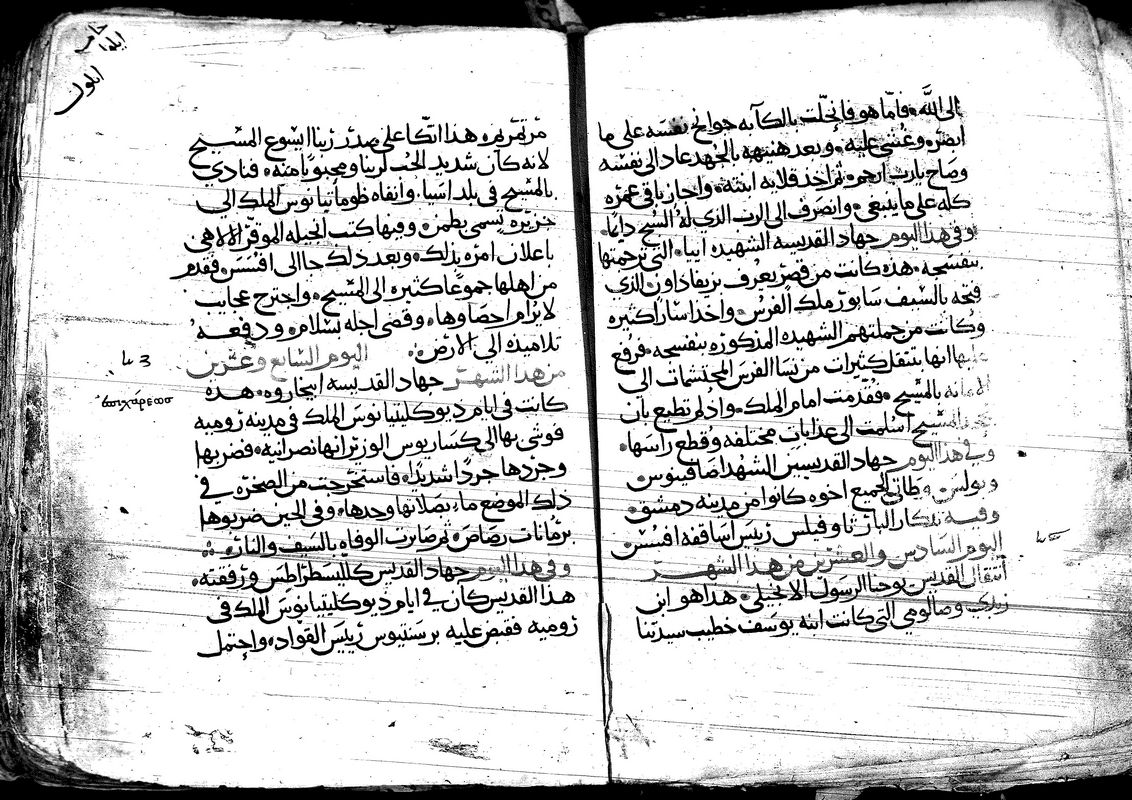 الى الله فاما هو فانحلت بالكآبه جوانح نفسه على ما
ابصر وغشي عليه وبعد هنيهه بالجهد عاد الى نفسه
وصاح يارب ارحم ثم اخذ قلابه ابنته واجاز باقي عمره
كله على ما ينبغي وانصرف الى الرب الذي له السبح دايما
وفي هذا اليوم جهاد القديسه الشهيده ابيا التي ترجمتها
بنفسجه هذه كانت من قصر يعرف بزيفاذاون الذي
فتحه بالسيف سابور ملك الفرس واخذ اسارا كثيره
وكانت من جملتهم الشهيده المذكوره بنفسجه فرفع
عليها انها بتنقل كثيرات من نسا الفرس المحتشمات الى
الامانه بالمسيح فقدمت امام الملك واذ لم تطيع بان
تجحد المسيح اسلمت الى عذابات مختلفه وقطع راسها
وفي هذا اليوم جهاد القديسين الشهدا صافينوس
وبولس وطاثي الجميع اخوه كانوا من مدينه دمشق
وفيه تذكار البار ثاوفيلس رييس اساقفه افسس
اليوم السادس والعشرين من هذا الشهر
انتقال القديس يوحنا الرسول الانجيلي هذا هو ابن
زبدي وصالومي التي كانت ابنه يوسف خطيب سيدتنا
حامر
ايلول
مرتمريم هذا اتكا على صدر ربنا ايسوع المسيح
لانه كان شديد الحب لربنا ومحبوبا منه فنادي
بالمسيح في بلد اسيا وانفاه ظوماتيانوس الملك الي
جزيره تسمى بطمن وفيها كتب انجيله الموقر الالاهي
باعلان امره بذلك وبعد ذلك جا الى افسس فقدم
من اهلها جموعا كثيره الى المسيح واجترح عجايب
لا يرام احصاوها وقضى اجله بسلام ودفعه
تلاميذه الي الارض اليوم السابع وعشرين
من هذا الشهر جهاد القديسه ابيخاروه هذه
كانت في ايام ديوكليتيانوس الملك في مدينه روميه
فوشي بها الى كساريوس الوزير انها نصرانيه فضربها
وجردها جردا شديدا فاستخرجت من الصخره في
ذلك الموضع ماء بصلاتها وحدها وفي الحين ضربوها
برمانات رصاص ثم صابرت الوفاه بالسيف والنار
وفي هذا اليوم جهاد القديس كلليسطراطس ورفقته
هذا القديس كان في ايام ديوكليتيانوس الملك في
روميه فقبض عليه برسنتيوس رييس القواد واحتمل